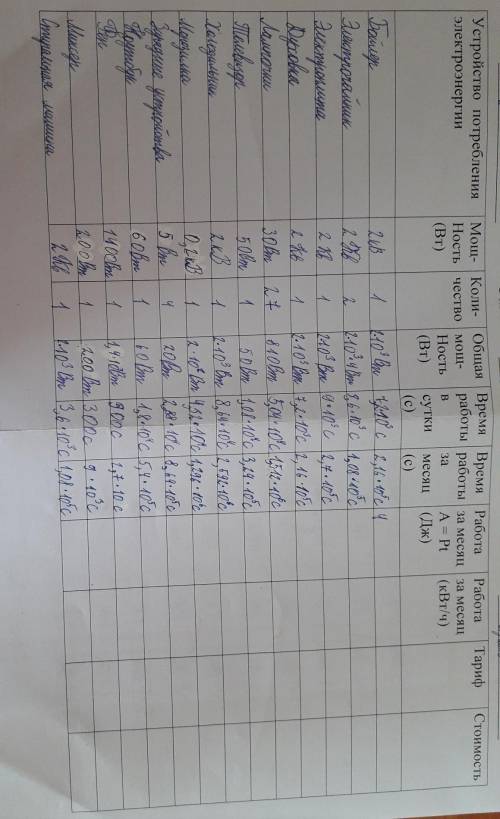 Устройство потребления электроэнергии | Мощ-Ность (Вт) | Коли-чество | Общая мощ-Ность (Вт) | Время работы в сутки (с) | Время работы за месяц (с) | Работа за месяц A = Pt (Дж) | Работа за месяц (кВт/ч) | Тариф | Стоимость
1 | 2·10³ Вт | 2,16·10⁵ с
Электрочайник | 2 | 3,6·10³ с | 1,08·10⁵ с
Электроплита | 1 | 2·10³ Вт | 9·10³ с | 2,7·10⁵ с
Духовка | 1 | 2·10³ Вт | 7,2·10³ с | 2,16·10⁵ с
Лампочки | 30 Вт | 27 | 810 Вт | 5,04·10⁴ с
Телевизор | 50 Вт | 1 | 50 Вт | 1,08·10⁴ с | 3,24·10⁵ с
Холодильник | 2 кВ | 1 | 2·10³ Вт | 8,64·10⁴ с | 2,592·10⁶ с
0,2 кВ | 1 | 2·10² Вт
Зарядные устройства | 5 Вт | 4 | 20 Вт | 2,88·10⁴ с | 8,64·10⁵ с
Ноутбук | 60 Вт | 1 | 60 Вт | 1,8·10⁴ с | 5,4·10⁵ с
Фен | 1400 Вт | 1 | 900 с
Миксер | 200 Вт | 1 | 200 Вт | 300 с | 9·10³ с
Стиральная машина | 1 | 2·10³ Вт | 3,6·10³ с | 1,08·10⁵ с